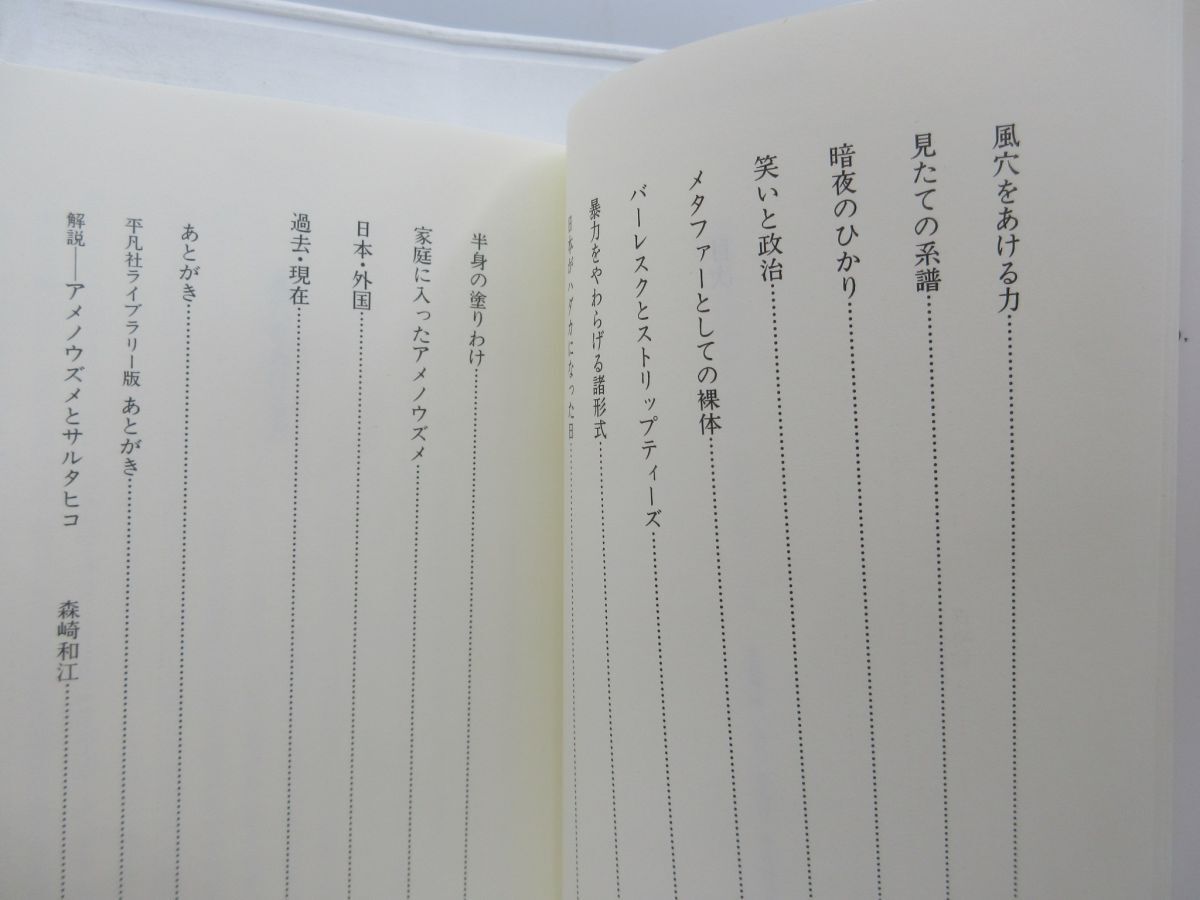 風穴をあける力
見たての系譜
暗夜のひかり
笑いと政治
メタファーとしての裸体
バーレスクとストリップティーズ
暴力をやわらげる諸形式
日本がハダカになった日
半身の塗りわけ
家庭に入ったアメノウズメ
日本・外国
過去・現在
あとがき
平凡社ライブラリー版 あとがき
解説——アメノウズメとサルタヒコ 森崎和江